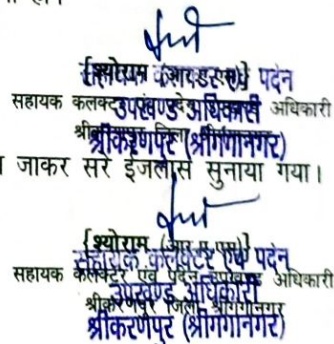 {श्योराम (आर.ए.एस)}
सहायक कलक्टर एवं पदेन
सहायक कलक्टर एवं पदेन उपखण्ड अधिकारी
उपखण्ड अधिकारी
श्रीकरणपुर जिला श्रीगंगानगर
श्रीकरणपुर (श्रीगंगानगर)
जाकर सरे इजलास सुनाया गया।
{श्योराम (आर.ए.एस)}
सहायक कलक्टर एवं पदेन
सहायक कलेक्टर एवं पदेन उपखण्ड अधिकारी
उपखण्ड अधिकारी
श्रीकरणपुर जिला श्रीगंगानगर
श्रीकरणपुर (श्रीगंगानगर)